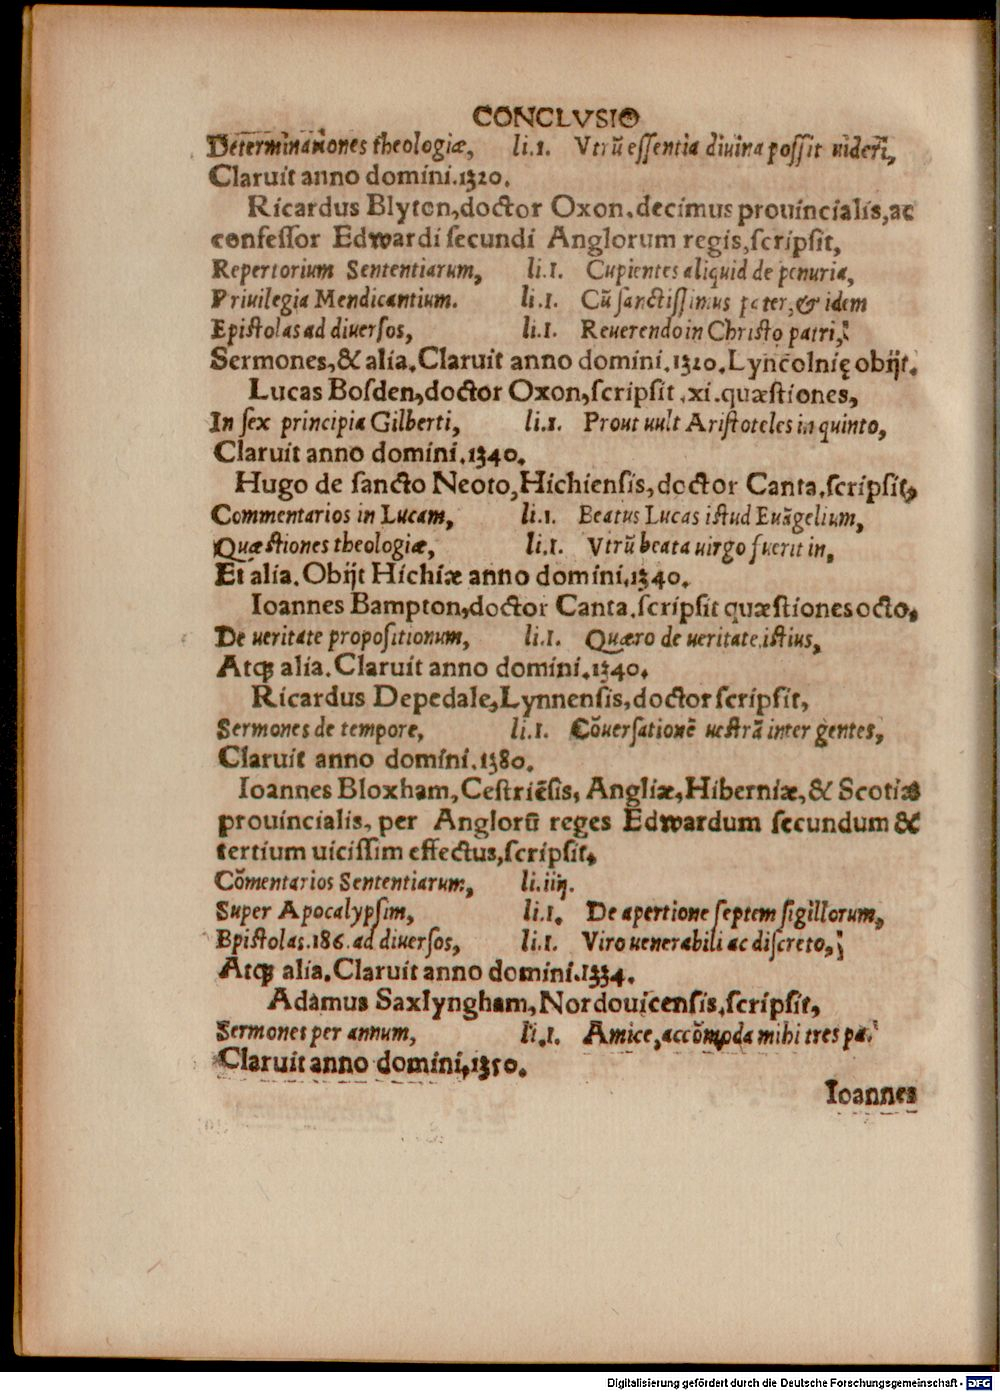 CONCLVSIO
Determinationes theologiæ, li.1. Vtrũ eſſentia diuina poſſit uideri,
Claruit anno domini.1320.
Ricardus Blyton,doctor Oxon.decimus prouincialis,ac
confeſſor Edwardi ſecundi Anglorum regis,ſcripſit,
Repertorium Sententiarum, li.1. Cupientes aliquid de penuria,
Priuilegia Mendicantium. li.1. Cũ ſanctiſſimus pater,& idem
Epiſtolas ad diuerſos, li.1. Reuerendo in Chriſto patri,
Sermones,& alia.Claruit anno domini.1320.Lyncolnię obijt.
Lucas Boſden,doctor Oxon,ſcripſit .xi.quæſtiones,
In ſex principia Gilberti, li.1. Prout uult Ariſtoteles in quinto,
Claruit anno domini.1340.
Hugo de ſancto Neoto,Hichienſis,doctor Canta.ſcripſit,
Commentarios in Lucam, li.1. Beatus Lucas iſtud Euãgelium,
Quæſtiones theologiæ, li.1. Vtrũ beata uirgo fuerit in,
Et alia.Obijt Hichiæ anno domini.1340.
Ioannes Bampton,doctor Canta.ſcripſit quæſtiones octo,
De ueritate propoſitionum, li.1. Quæro de ueritate iſtius,
Atꝗ alia.Claruit anno domini.1340.
Ricardus Depedale,Lynnenſis,doctor ſcripſit,
Sermones de tempore, li.1. Cõuerſationẽ ueſtrã inter gentes,
Claruit anno domini.1380.
Ioannes Bloxham,Ceſtriẽſis, Angliæ,Hiberniæ,& Scotiæ
prouincialis, per Anglorũ reges Edwardum ſecundum &
tertium uiciſſim effectus,ſcripſit,
Cõmentarios Sententiarum, li.iiij.
Super Apocalypſim, li.1. De apertione ſeptem ſigillorum,
Epiſtolas.186.ad diuerſos, li.1. Viro uenerabili ac diſcreto,
Atꝗ alia.Claruit anno domini.1334.
Adamus Saxlyngham,Nordouicenſis,ſcripſit,
Sermones per annum, li.1. Amice,accõmoda mihi tres pa.
Claruit anno domini.1350.
Ioannes
Digitalisierung gefördert durch die Deutsche Forschungsgemeinschaft - DFG